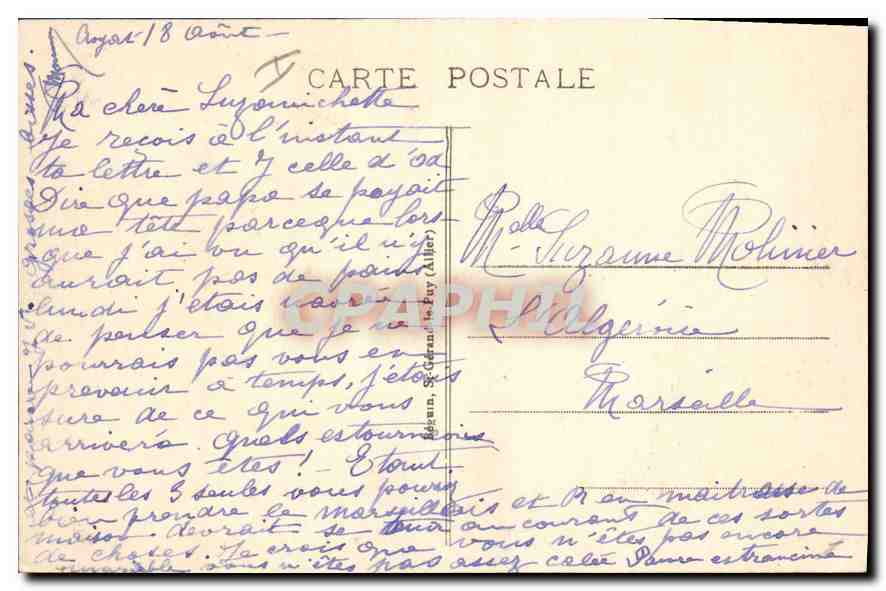 18 Août
CARTE POSTALE
Ma chère Suzonichette
Je reçois à l'instant
ta lettre et celle d'
Dire que papa se payait
ma tête parceque lors-
que j'ai vu qu'il n'y
aurait pas de pain
lundi j'étais navrée
de penser que je ne
pourrais pas vous en
prevenir à temps, j'étais
sure de ce qui vous
arrivera Quels
que vous êtes! - Etant
toutes les 3 seules vous pouviez
bien prendre le marseillais et en de
maison devrait se tenir au courant de ces sortes
de choses. Je crois que vous n'êtes pas encore
vous n'êtes pas assez calée Pauvre
grosses bises.
Béguin, St-Gérand-le-Puy (Allier)
Melle Suzanne Molinier
L'Algéroise
Marseille
CPAPHIL